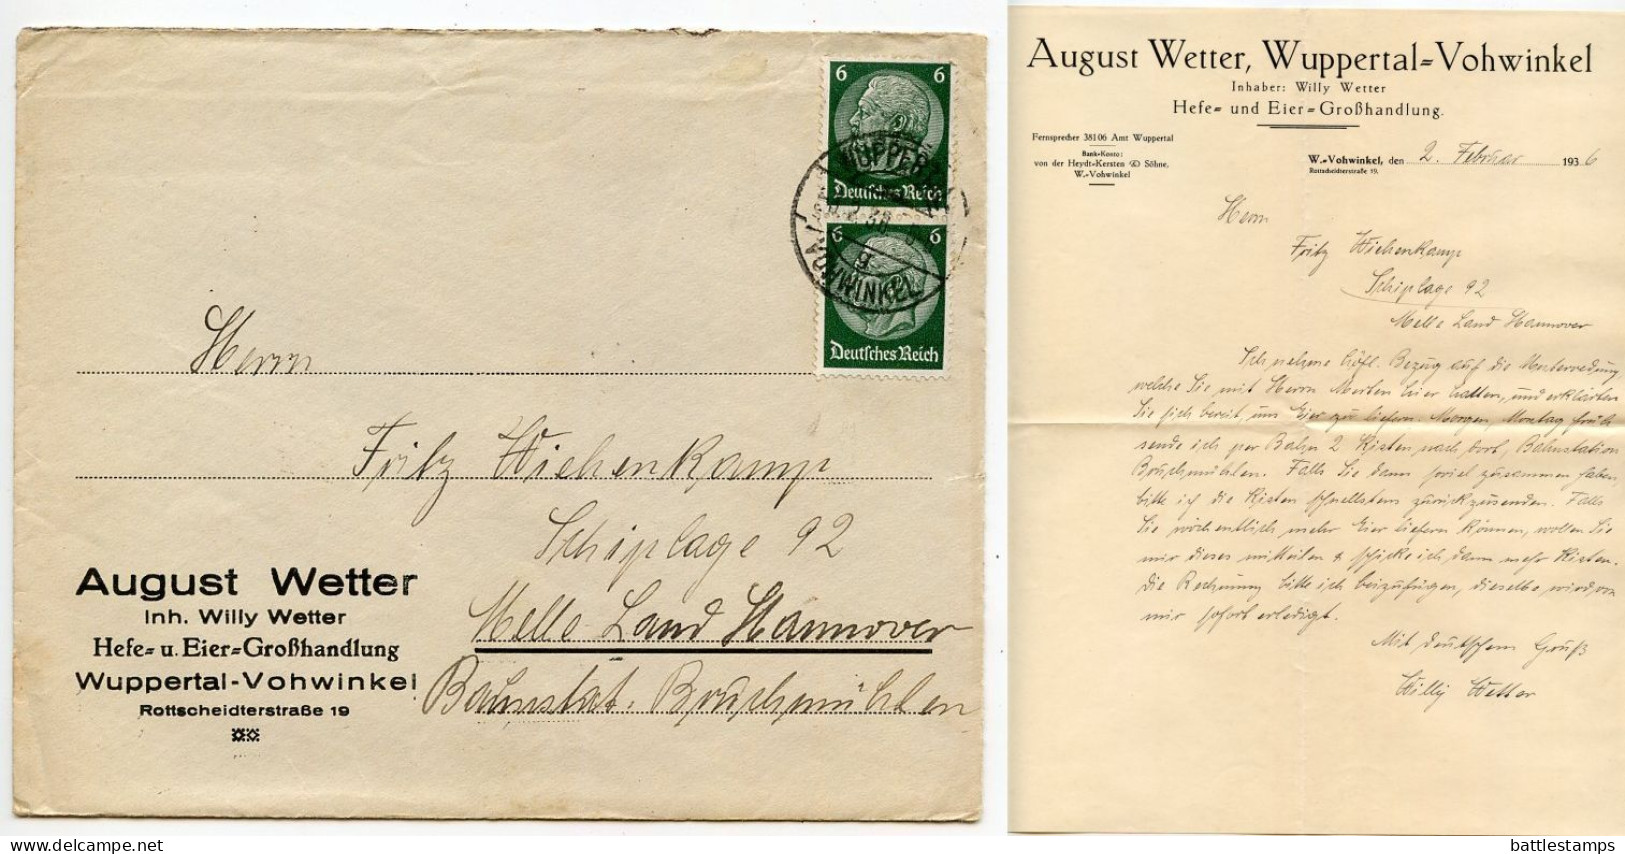 6 6
Deutsches Reich
6 6
Deutsches Reich
WUPPERTAL
VOHWINKEL
Herrn
Fritz Wiehenkamp
Schiplage 92
Melle Land Hannover
Bahnstat. Bruchmühlen
August Wetter
Inh. Willy Wetter
Hefe- u. Eier-Großhandlung
Wuppertal-Vohwinkel
Rottscheidterstraße 19
August Wetter, Wuppertal-Vohwinkel
Inhaber: Willy Wetter
Hefe- und Eier-Großhandlung.
Fernsprecher 38106 Amt Wuppertal
Bank-Konto:
von der Heydt-Kersten & Söhne,
W.-Vohwinkel
W.-Vohwinkel, den 2. Februar 1936
Rottscheidterstraße 19.
Herrn
Fritz Wiehenkamp
Schiplage 92
Melle Land Hannover
Ich nehme höfl. Bezug auf die Unterredung,
welche Sie mit Herrn Merten hier hatten, und erklärten
Sie sich bereit, uns Eier zu liefern. Morgen, Montag früh
sende ich per Bahn 2 Kisten nach dort, Bahnstation
Bruchmühlen. Falls Sie dann soviel zusammen haben,
bitte ich die Kisten schnellstens zurückzusenden. Falls
Sie wöchentlich mehr Eier liefern können, wollen Sie
mir dieses mitteilen & schicke ich dann mehr Kisten.
Die Rechnung bitte ich beizufügen, dieselbe wird von
mir sofort erledigt.
Mit deutschem Gruß
Willy Wetter
battlestamps